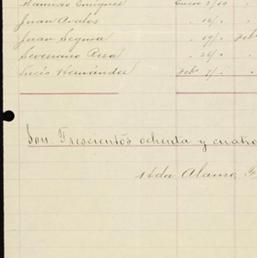 Enriquez Enero 2/10
Juan Avalos " 16/"
Juan Segura " 19/" Feb
Severiano Rosa " 26/"
Lucio Hernández Feb 7/"
Son Trescientos ochenta y cuatro
Alamo